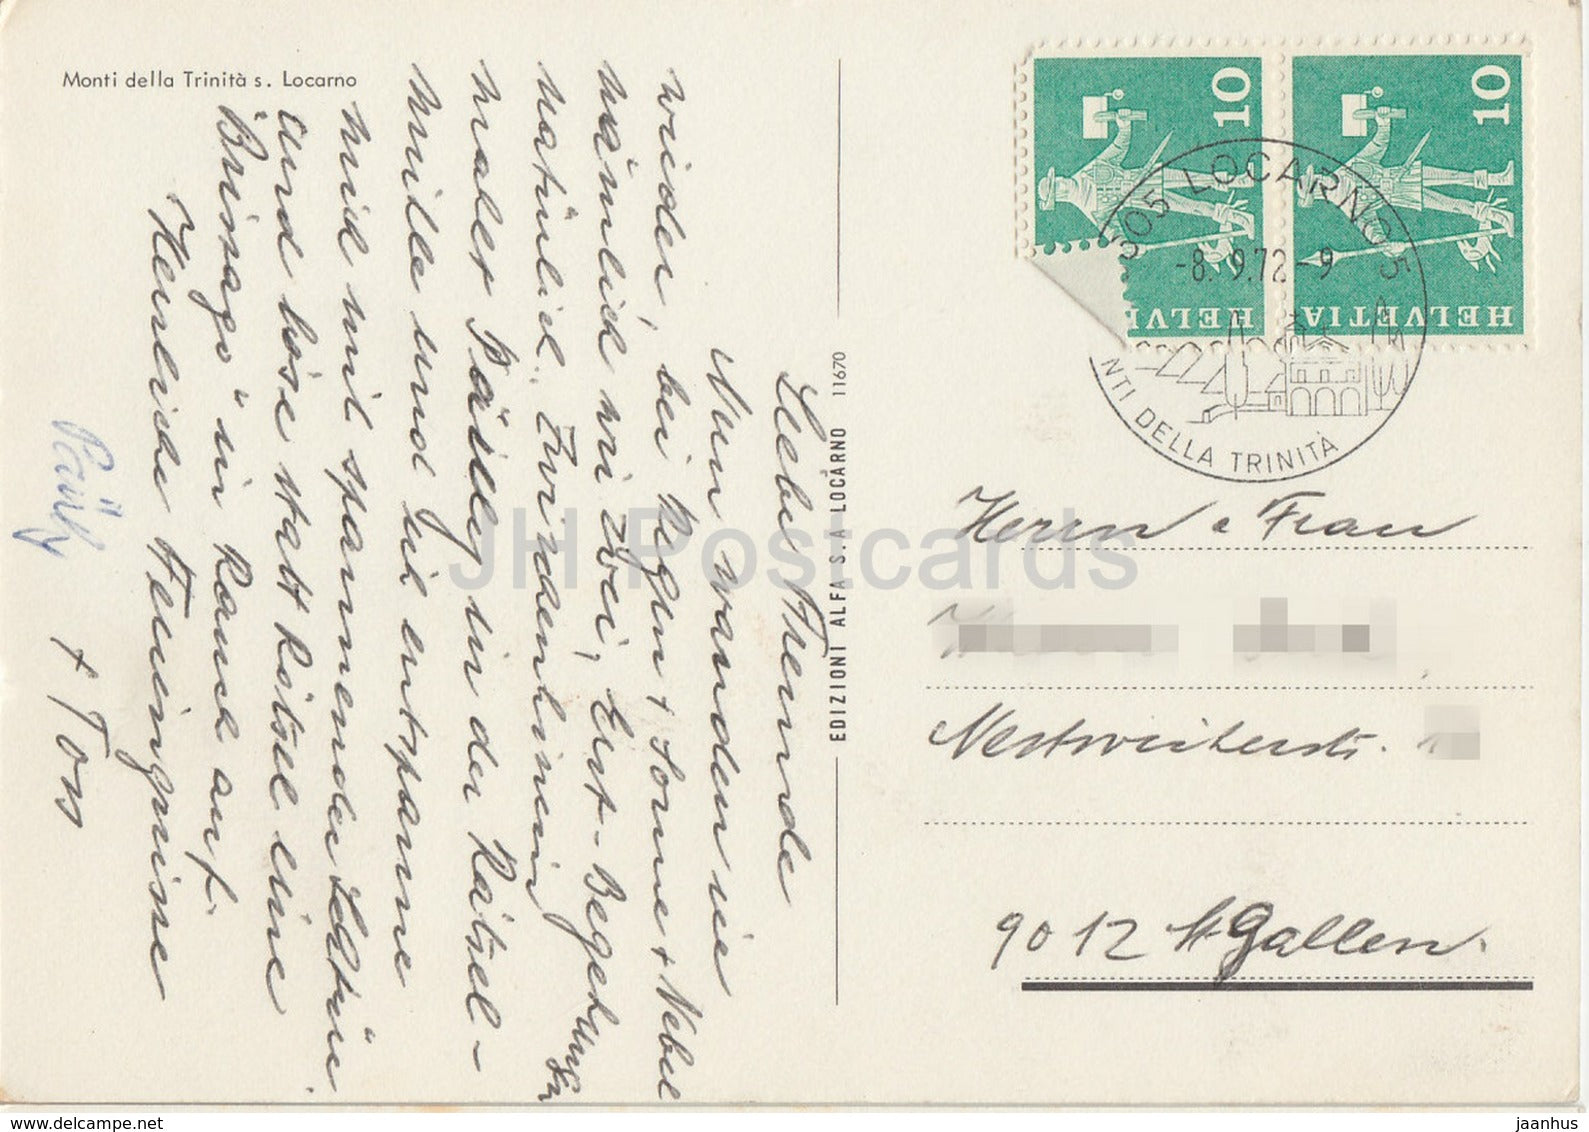 Monti della Trinità s. Locarno
Liebe Freunde
Nun wandern wir
wieder, bei Regen + Sonne + Nebel
nämlich wir zwei, Erst-Begehungen
natürlich. Zwischenhinein
macht Pauly in der Rätsel-
mühle und ich entspanne
mich mit spannender Lektüre.
und löse statt Rätsel eine
"Brissago" in Rauch auf.
Herzliche Feriengrüsse
Pauly
+ Ton
EDIZIONI ALFA S.A LOCARNO 11670
10
HELVETIA
10
HELVETIA
LOCARNO 5
-8.9.72-9
NTI DELLA TRINITÀ
Herrn & Frau
9012 St Gallen.
JH Postcards
www.delcampe.net
jaanhus